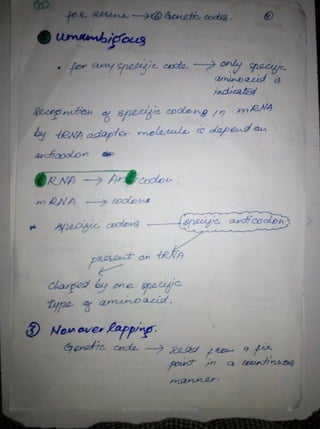 for serine → 6 Genetic codes.
unambigous
• for any specific code → only specific
aminoacid is
indicated
Recognition of specific codons in mRNA
by tRNA adapter molecule is depend on
anticodon
tRNA → Anticodon.
mRNA → codons
* specific codons — specific anticodon
present on tRNA
charged by one specific
type of aminoacid.
③ Nonoverlapping.
Genetic code → read from a fix
point in a countinuous
manner.